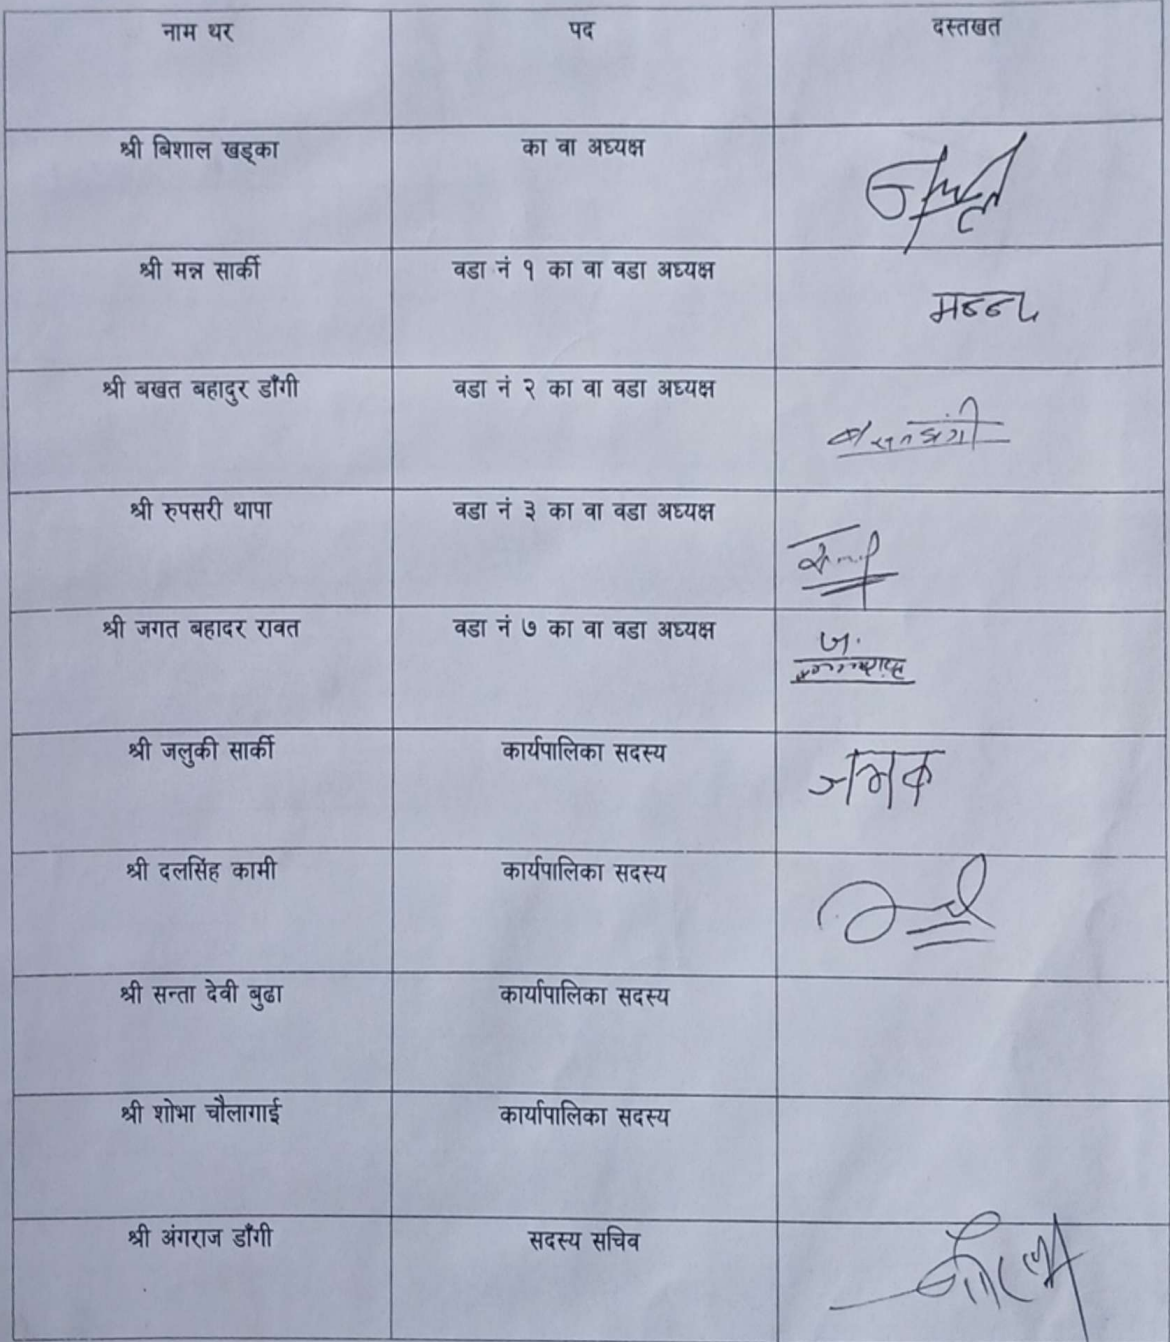 नाम थर पद दस्तखत
श्री बिशाल खड्का का वा अध्यक्ष
श्री मन्न सार्की वडा नं १ का वा वडा अध्यक्ष
मन्न
श्री बखत बहादुर डाँगी वडा नं २ का वा वडा अध्यक्ष
श्री रुपसरी थापा वडा नं ३ का वा वडा अध्यक्ष
श्री जगत बहादर रावत वडा नं ७ का वा वडा अध्यक्ष
ज.
श्री जलुकी सार्की कार्यपालिका सदस्य
श्री दलसिंह कामी कार्यपालिका सदस्य
श्री सन्ता देवी बुढा कार्यापालिका सदस्य
श्री शोभा चौलागाई कार्यापालिका सदस्य
श्री अंगराज डाँगी सदस्य सचिव